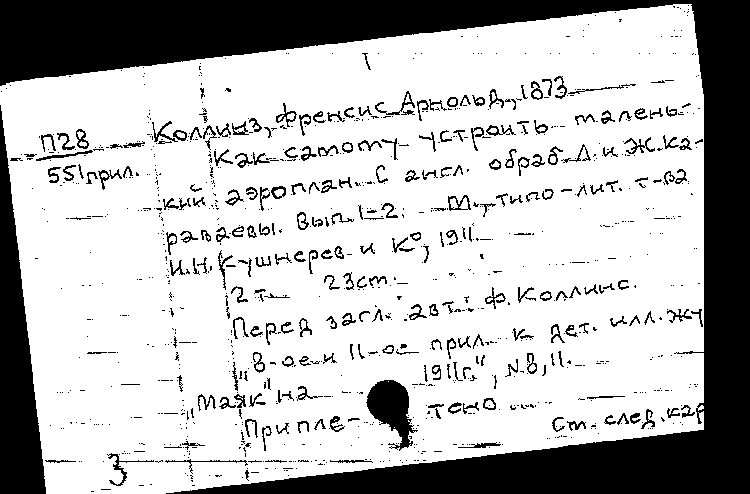 I
П28 Коллинз, Френсис Арнольд, 1873
551прил. Как самому устроить малень-
кий аэроплан. С англ. обраб. А. и Ж. Ка-
раваевы. Вып. 1-2. М., типо-лит. т-ва
И.Н. Кушнерев и К°, 1911.
2 т. 23см.
Перед загл. авт.: Ф. Коллинс.
„8-ое и 11-ое прил. к дет. илл. жу
„Маяк" на 1911г.", N.8, 11.
Припле- тено
См. след. кар
3